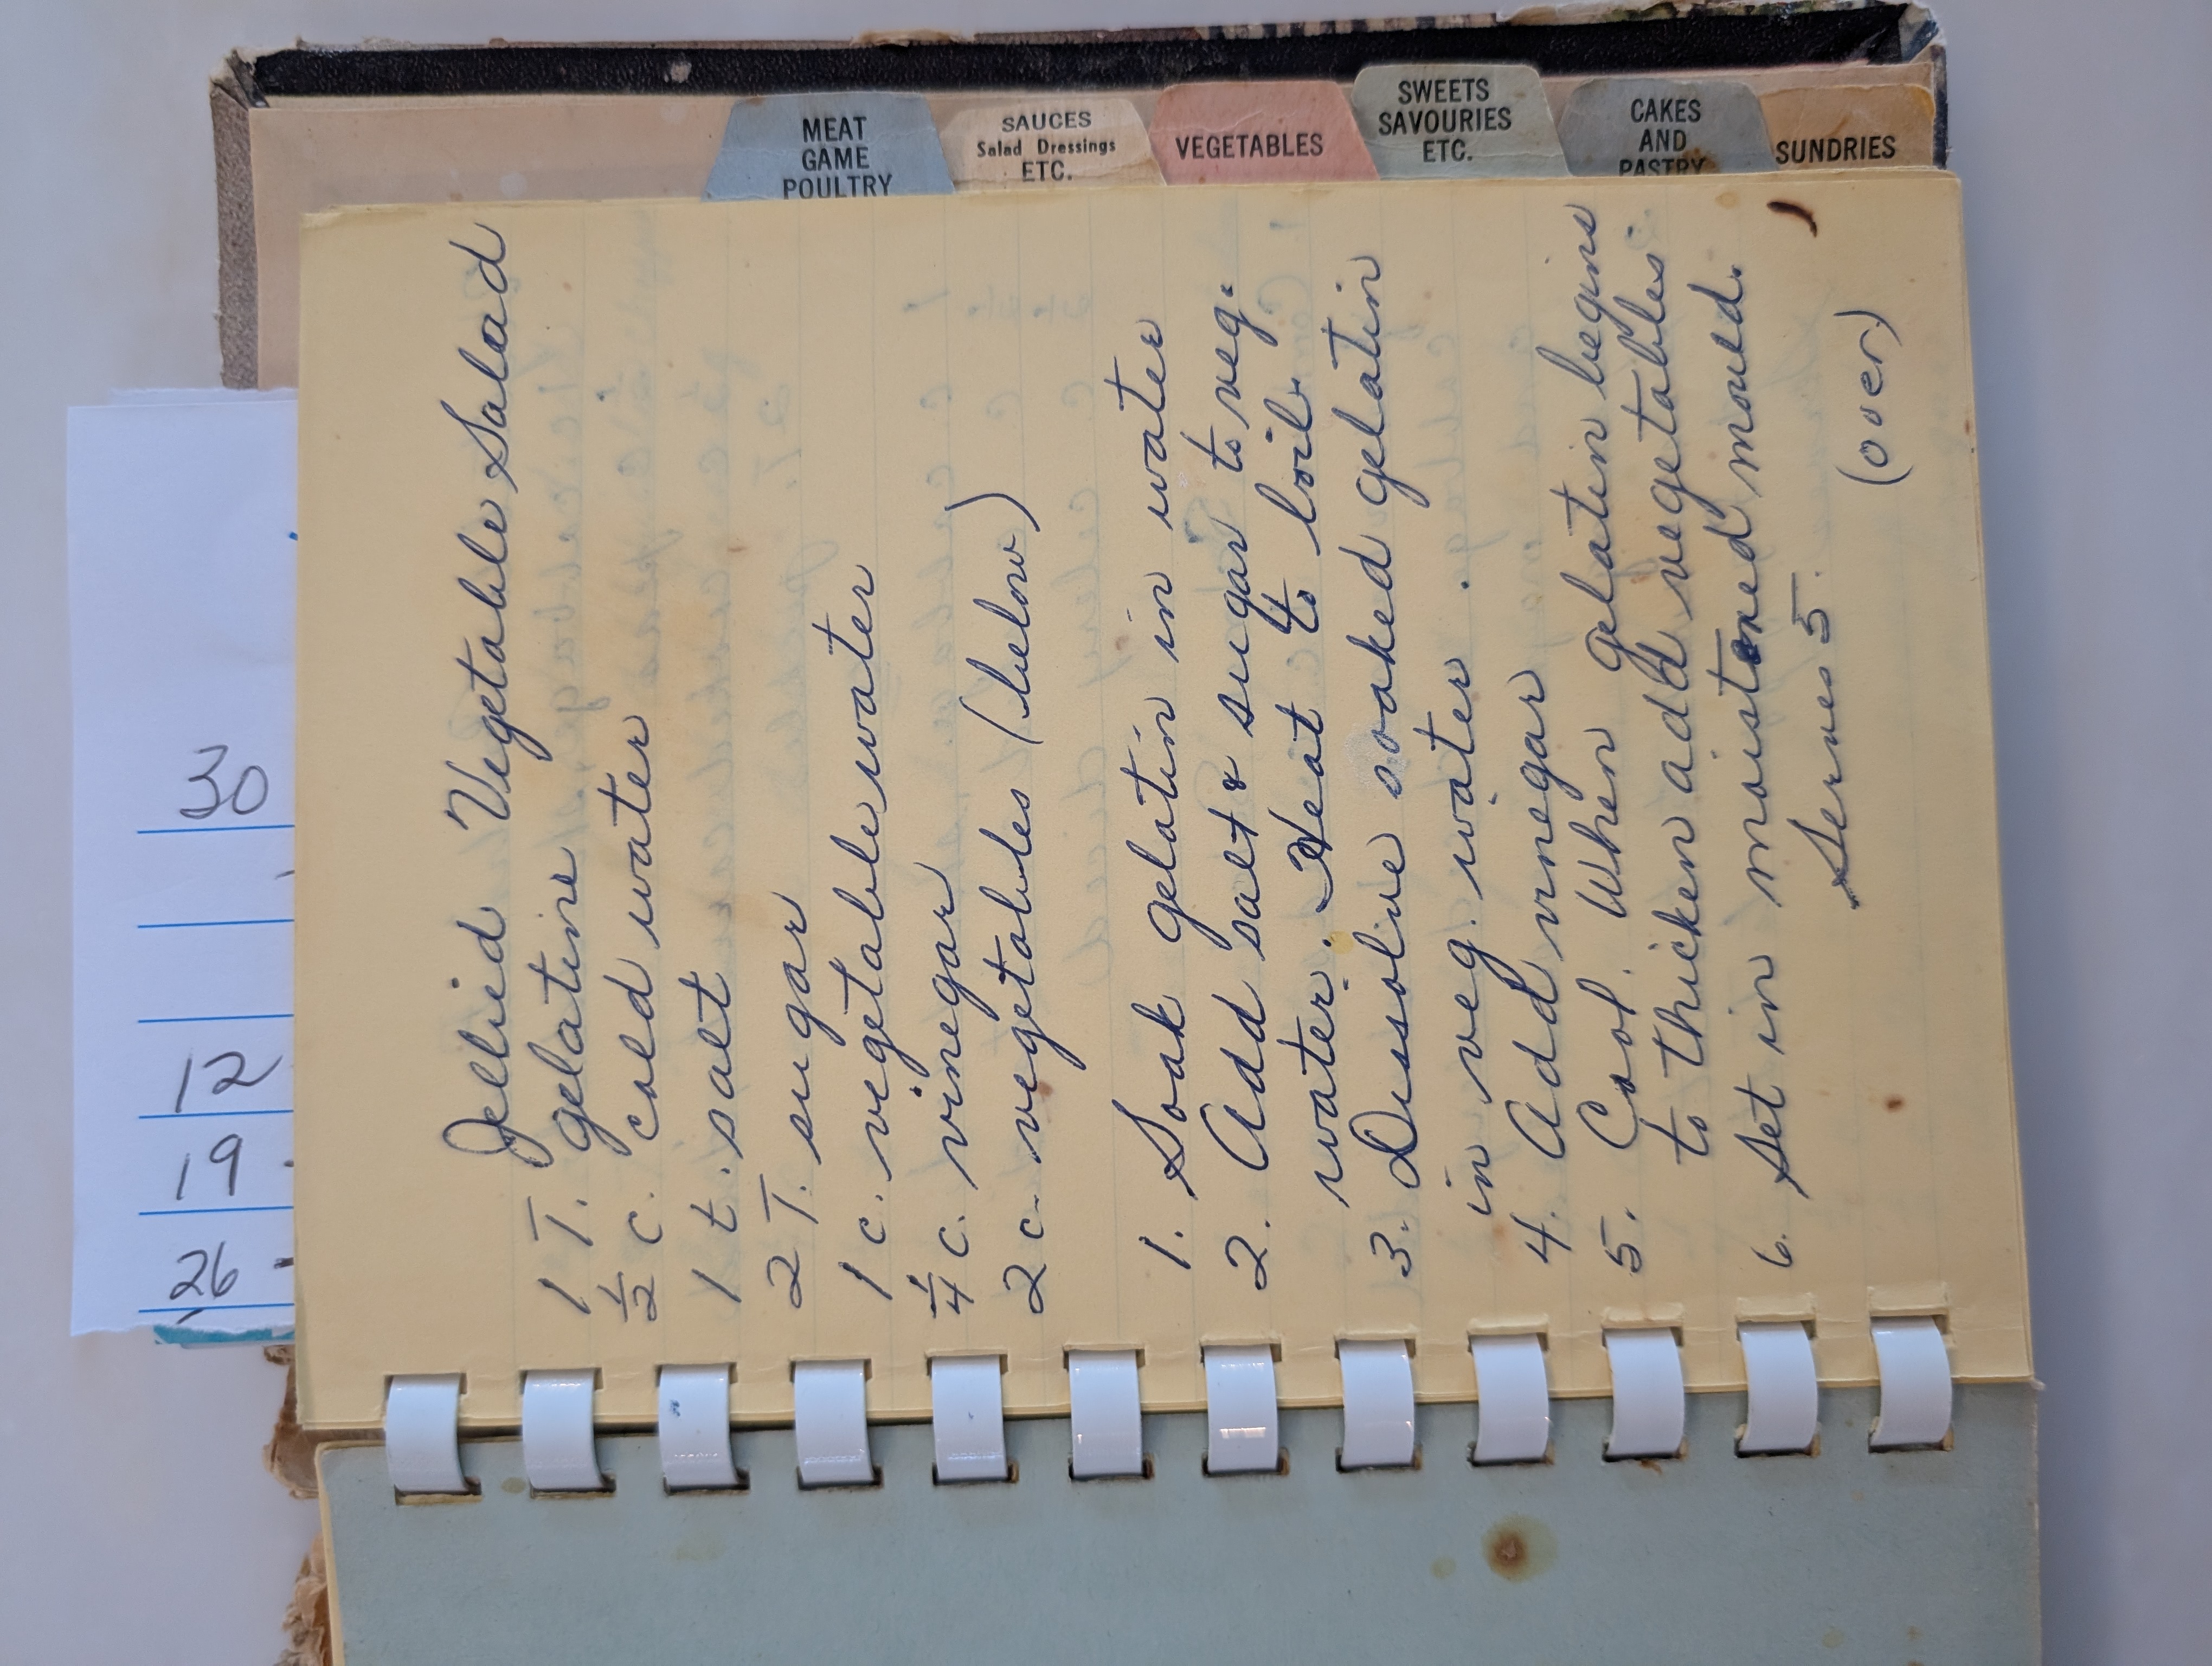 MEAT
GAME
POULTRY
SAUCES
Salad Dressings
ETC.
VEGETABLES
SWEETS
SAVOURIES
ETC.
CAKES
AND
PASTRY
SUNDRIES
30
12
19
26
Jellied Vegetable Salad
1 T. gelatine
1/2 c. cold water
1 t. salt
2 T. sugar
1 c. vegetable water
1/4 c. vinegar
2 c. vegetables (below)
1. Soak gelatin in water
2. Add salt & sugar to veg.
water. Heat to boil.
3. Dissolve soaked gelatin
in veg. water.
4. Add vinegar
5. Cool. When gelatin begins
to thicken add vegetables
6. Set in moistoned mould.
Serves 5.
(over)